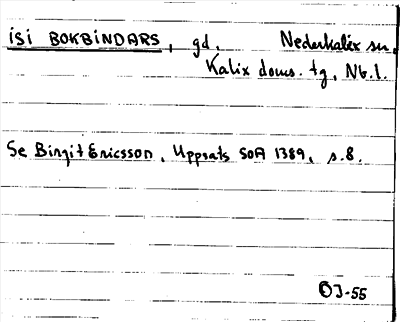 isi BOKBINDARS, gd. Nederkalix sn.
Kalix doms. tg, Nb. l.
Se Birgit Ericsson, Uppsats SOA 1389, s. 8.
OJ-55